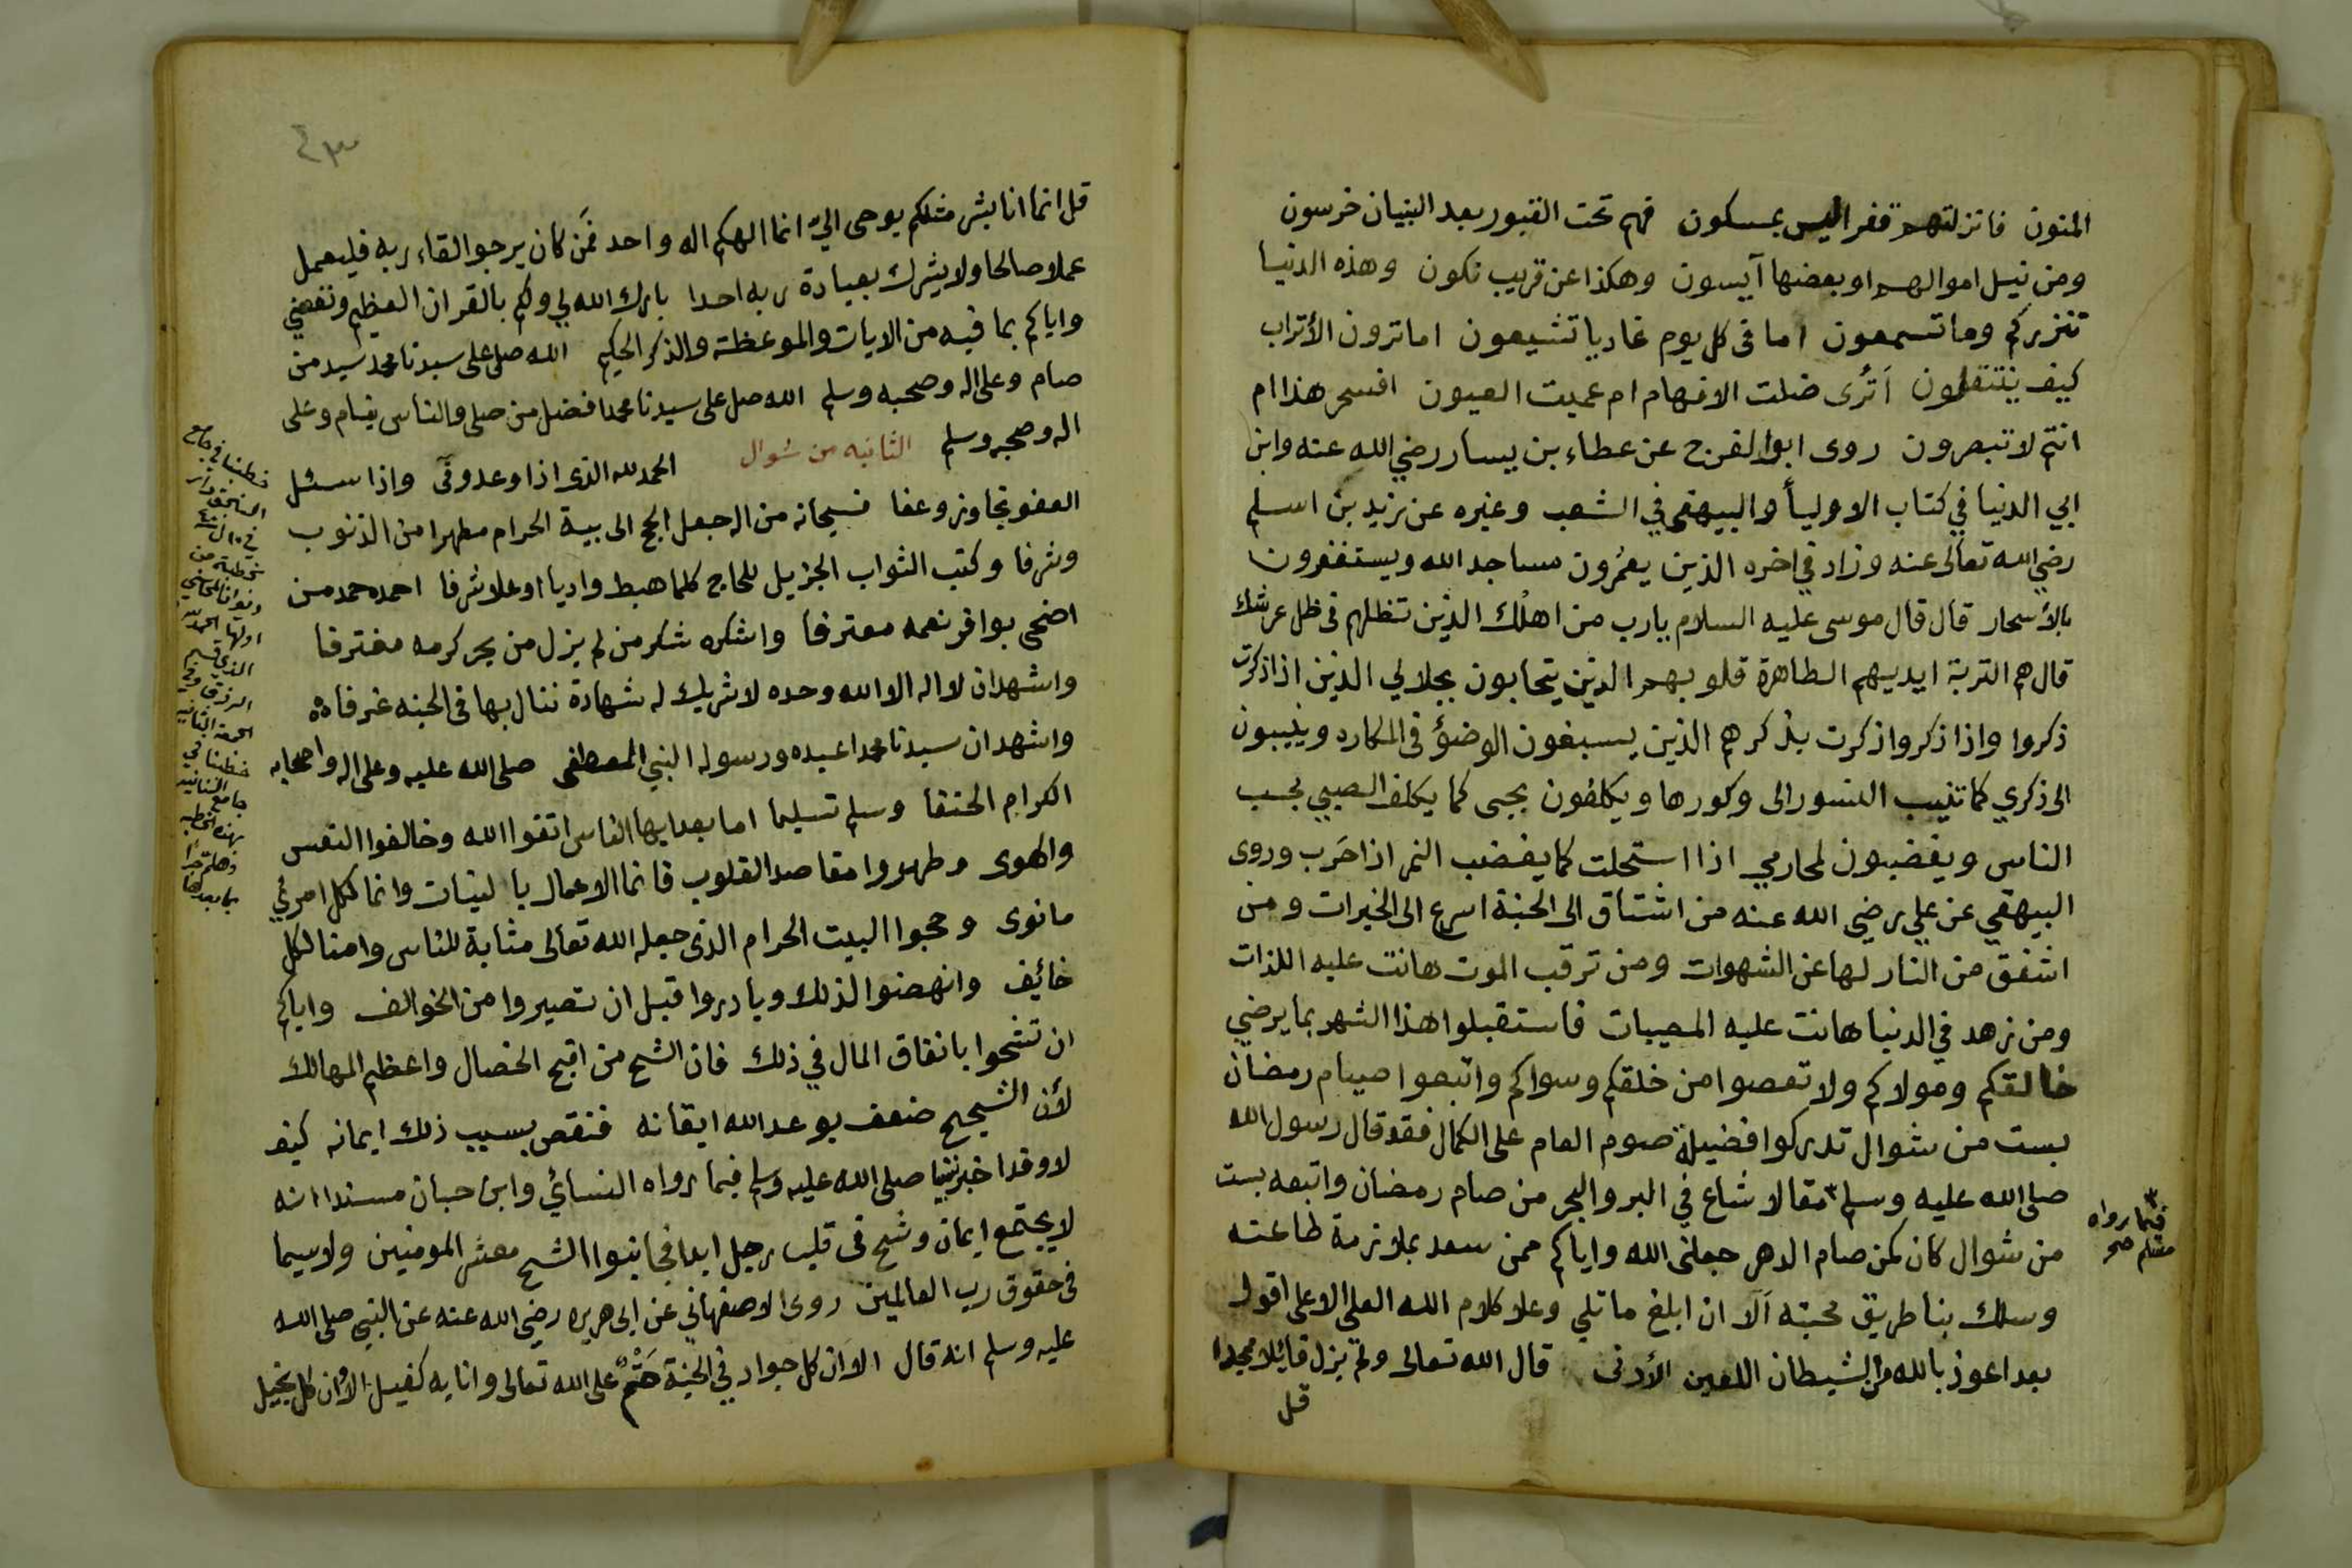 المنون فانزلتهم قفرا ليس بمسكون فهم تحت القبور بعد البنيان خرسون
ومن نيل اموالهم او بعضها آيسون وهكذا عن قريب نكون وهذه الدنيا
تنذركم وما تسمعون اما فى كل يوم غاديا تشيعون اما ترون الأتراب
كيف ينتقلون اَتُرى ضلت الافهام ام عميت العيون افسحر هذا ام
انتم لا تبصرون روى ابو الفرج عن عطاء بن يسار رضي الله عنه وابن
ابي الدنيا في كتاب الاولياً والبيهقي في الشعب وغيره عن زيد بن اسلم
رضي الله تعالى عنه وزاد في اخره الذين يعمُرون مساجد الله ويستغفرون
بالأسحار قال قال موسى عليه السلام يارب من اهلك الذين تظلهم فى ظل عرشك
قال هم التربة ايديهم الطاهرة قلوبهم الذين يتحابون بجلالي الذين اذا ذكرت
ذكروا واذا ذكروا ذكرت بذكرهم الذين يسبغون الوضؤ فى المكاره وينيبون
الى ذكري كما تنيب النسور الى وكورها ويكلفون بحبى كما يكلف الصبي بحب
الناس ويغضبون لمحارمي اذا استحلت كما يغضب النمر اذا حَرب وروى
البيهقي عن علي رضي الله عنه من اشتاق الى الجنة اسرع الى الخيرات ومن
اشفق من النار لها عن الشهوات ومن ترقب الموت هانت عليه اللذات
ومن زهد في الدنيا هانت عليه المصيبات فاستقبلوا هذا الشهر بما يرضي
خالقكم ومولاكم ولا تعصوا من خلقكم وسواكم واتبعوا صيام رمضان
بست من شوال تدركوا فضيلة صوم العام على الكمال فقد قال رسول الله
صلى الله عليه وسلم مقالا شاع في البر والبحر من صام رمضان واتبعه بست
فيما رواه
مسلم صح
من شوال كان كمن صام الدهر جعلنى الله واياكم ممن سعد بملازمة طاعته
وسلك بنا طريق محبته اَلا ان ابلغ ما تلي وعلا كلام الله العلي الاعلى اقول
بعد اعوذ بالله من الشيطان اللعين الأدنى قال الله تعالى ولم يزل قائلا مجدا
قل
قل انما انا بشر مثلكم يوحى اليّ انما الهكم اله واحد فمَن كان يرجوا لقاء ربه فليعمل
عملا صالحا ولا يشرك بعبادة ربه احدا بارك الله لي ولكم بالقران العظيم ونفعني
واياكم بما فيه من الايات والموعظة والذكر الحكيم الله صل على سيدنا محمد سيد من
صام وعلى اله وصحبه وسلم الله صل على سيدنا محمد افضل من صلى والناس نيام وعلى
اله وصحبه وسلم الثانيه من شوال الحمد لله الذى اذا وعد وفَى واذا سئل
العفو تجاوز وعفا فسبحانه من اله جعل الحج الى بيته الحرام مطهرا من الذنوب
وشرفا وكتب الثواب الجزيل للحاج كلما هبط واديا او علا شرفا احمده حمد من
اضحى بوافر نعمه معترفا واشكره شكر من لم يزل من بحر كرمه مغترفا
واشهد ان لا اله الا الله وحده لا شريك له شهادة ننال بها فى الجنه غرفا
واشهد ان سيدنا محمدا عبده ورسوله النبي المصطفى صلى الله عليه وعلى اله واصحابه
الكرام الحنفا وسلم تسليما اما بعد ايها الناس اتقوا الله وخالفوا النفس
والهوى وطهروا مقاصد القلوب فانما الاعمال بالنيات وانما لكل امرئ
ما نوى وحجوا البيت الحرام الذى جعله الله تعالى مثابة للناس وامنا لكل
خائف وانهضوا لذلك وبادروا قبل ان تصيروا من الخوالف واياكم
ان تشحوا بانفاق المال في ذلك فان الشح من اقبح الخصال واعظم المهالك
لأن الشحيح ضعف بوعد الله ايقانه فنقص بسبب ذلك ايمانه كيف
لا وقد اخبر نبينا صلى الله عليه وسلم فيما رواه النسائي وابن حبان مسندا انه
لا يجتمع ايمان وشح فى قلب رجل ابدا فجانبوا الشح معشر المومنين ولاسيما
فى حقوق رب العالمين روى الاصفهاني عن ابى هريره رضي الله عنه عن النبي صلى الله
عليه وسلم انه قال الا ان كل جواد في الجنة حَتْمٌ على الله تعالى وانا به كفيل الا وان كل بخيل
خطبنا في جامع
في
اولها الحمد لله
الذي قسم
الجمعة الثانيه
خطبنا في
جامع السنانيه
بهذه الخطبه
وهلم جرا
بما بعدها